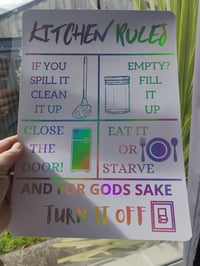 KITCHEN RULES
IF YOU
SPILL IT
CLEAN
IT UP
EMPTY?
FILL
IT
UP
CLOSE
THE
DOOR!
EAT IT
OR
STARVE
AND FOR GODS SAKE
TURN IT OFF